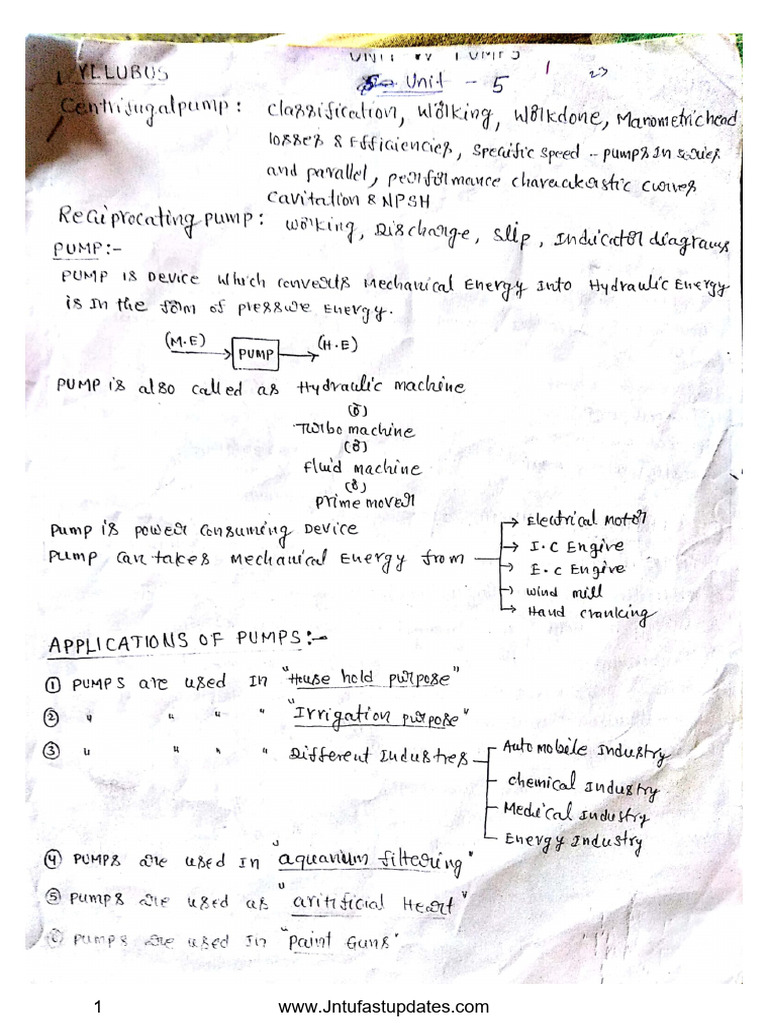 UNIT IV PUMPS
SYLLUBUS
Unit - 5
1
23
Centrifugal pump: Classification, Working, Workdone, Manometric head
losses & Efficiencies, Specific Speed - pumps in series
and parallel, performance characteristic curves
Cavitation & NPSH
Reciprocating pump: working, Discharge, Slip, Indicator diagrams
PUMP:-
PUMP is Device which converts Mechanical Energy Into Hydraulic Energy
is In the form of pressure Energy.
(M.E) → PUMP → (H.E)
PUMP is also called as Hydraulic machine
(or)
Turbo machine
(or)
Fluid machine
(or)
prime mover
Pump is power consuming Device
Pump can takes Mechanical Energy from
→ Electrical Motor
→ I.C Engive
→ E.C Engive
→ Wind mill
→ Hand cranking
APPLICATIONS OF PUMPS:-
① PUMPS are used In "House hold purpose"
② " " " " "Irrigation purpose"
③ " " " " Different Industres
- Automobile Industry
- Chemical Industry
- Medical Industry
- Energy Industry
④ PUMPS are used In "aquarium filtering"
⑤ PUMPS are used as "aritificial Heart"
⑥ PUMPS are used In "Paint Guns"
1 www.Jntufastupdates.com